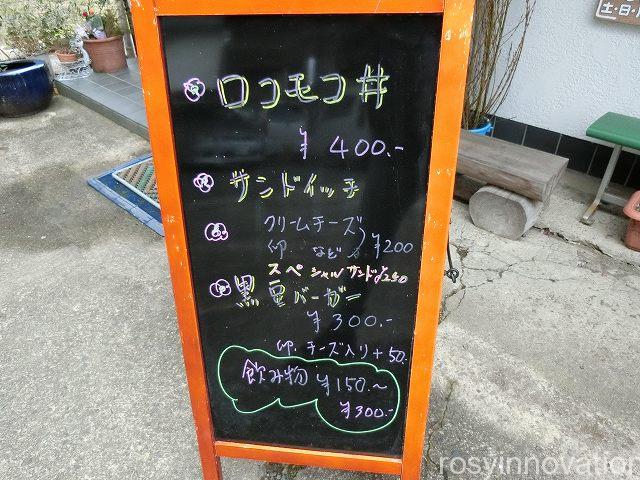 土・日・
ロコモコ丼
¥400.-
サンドイッチ
クリームチーズ
卵 など ¥200
スペシャルサンド¥250
黒豆バーガー
¥300.-
卵.チーズ入り+50.
飲み物 ¥150.~
¥300.-
rosyinnovation